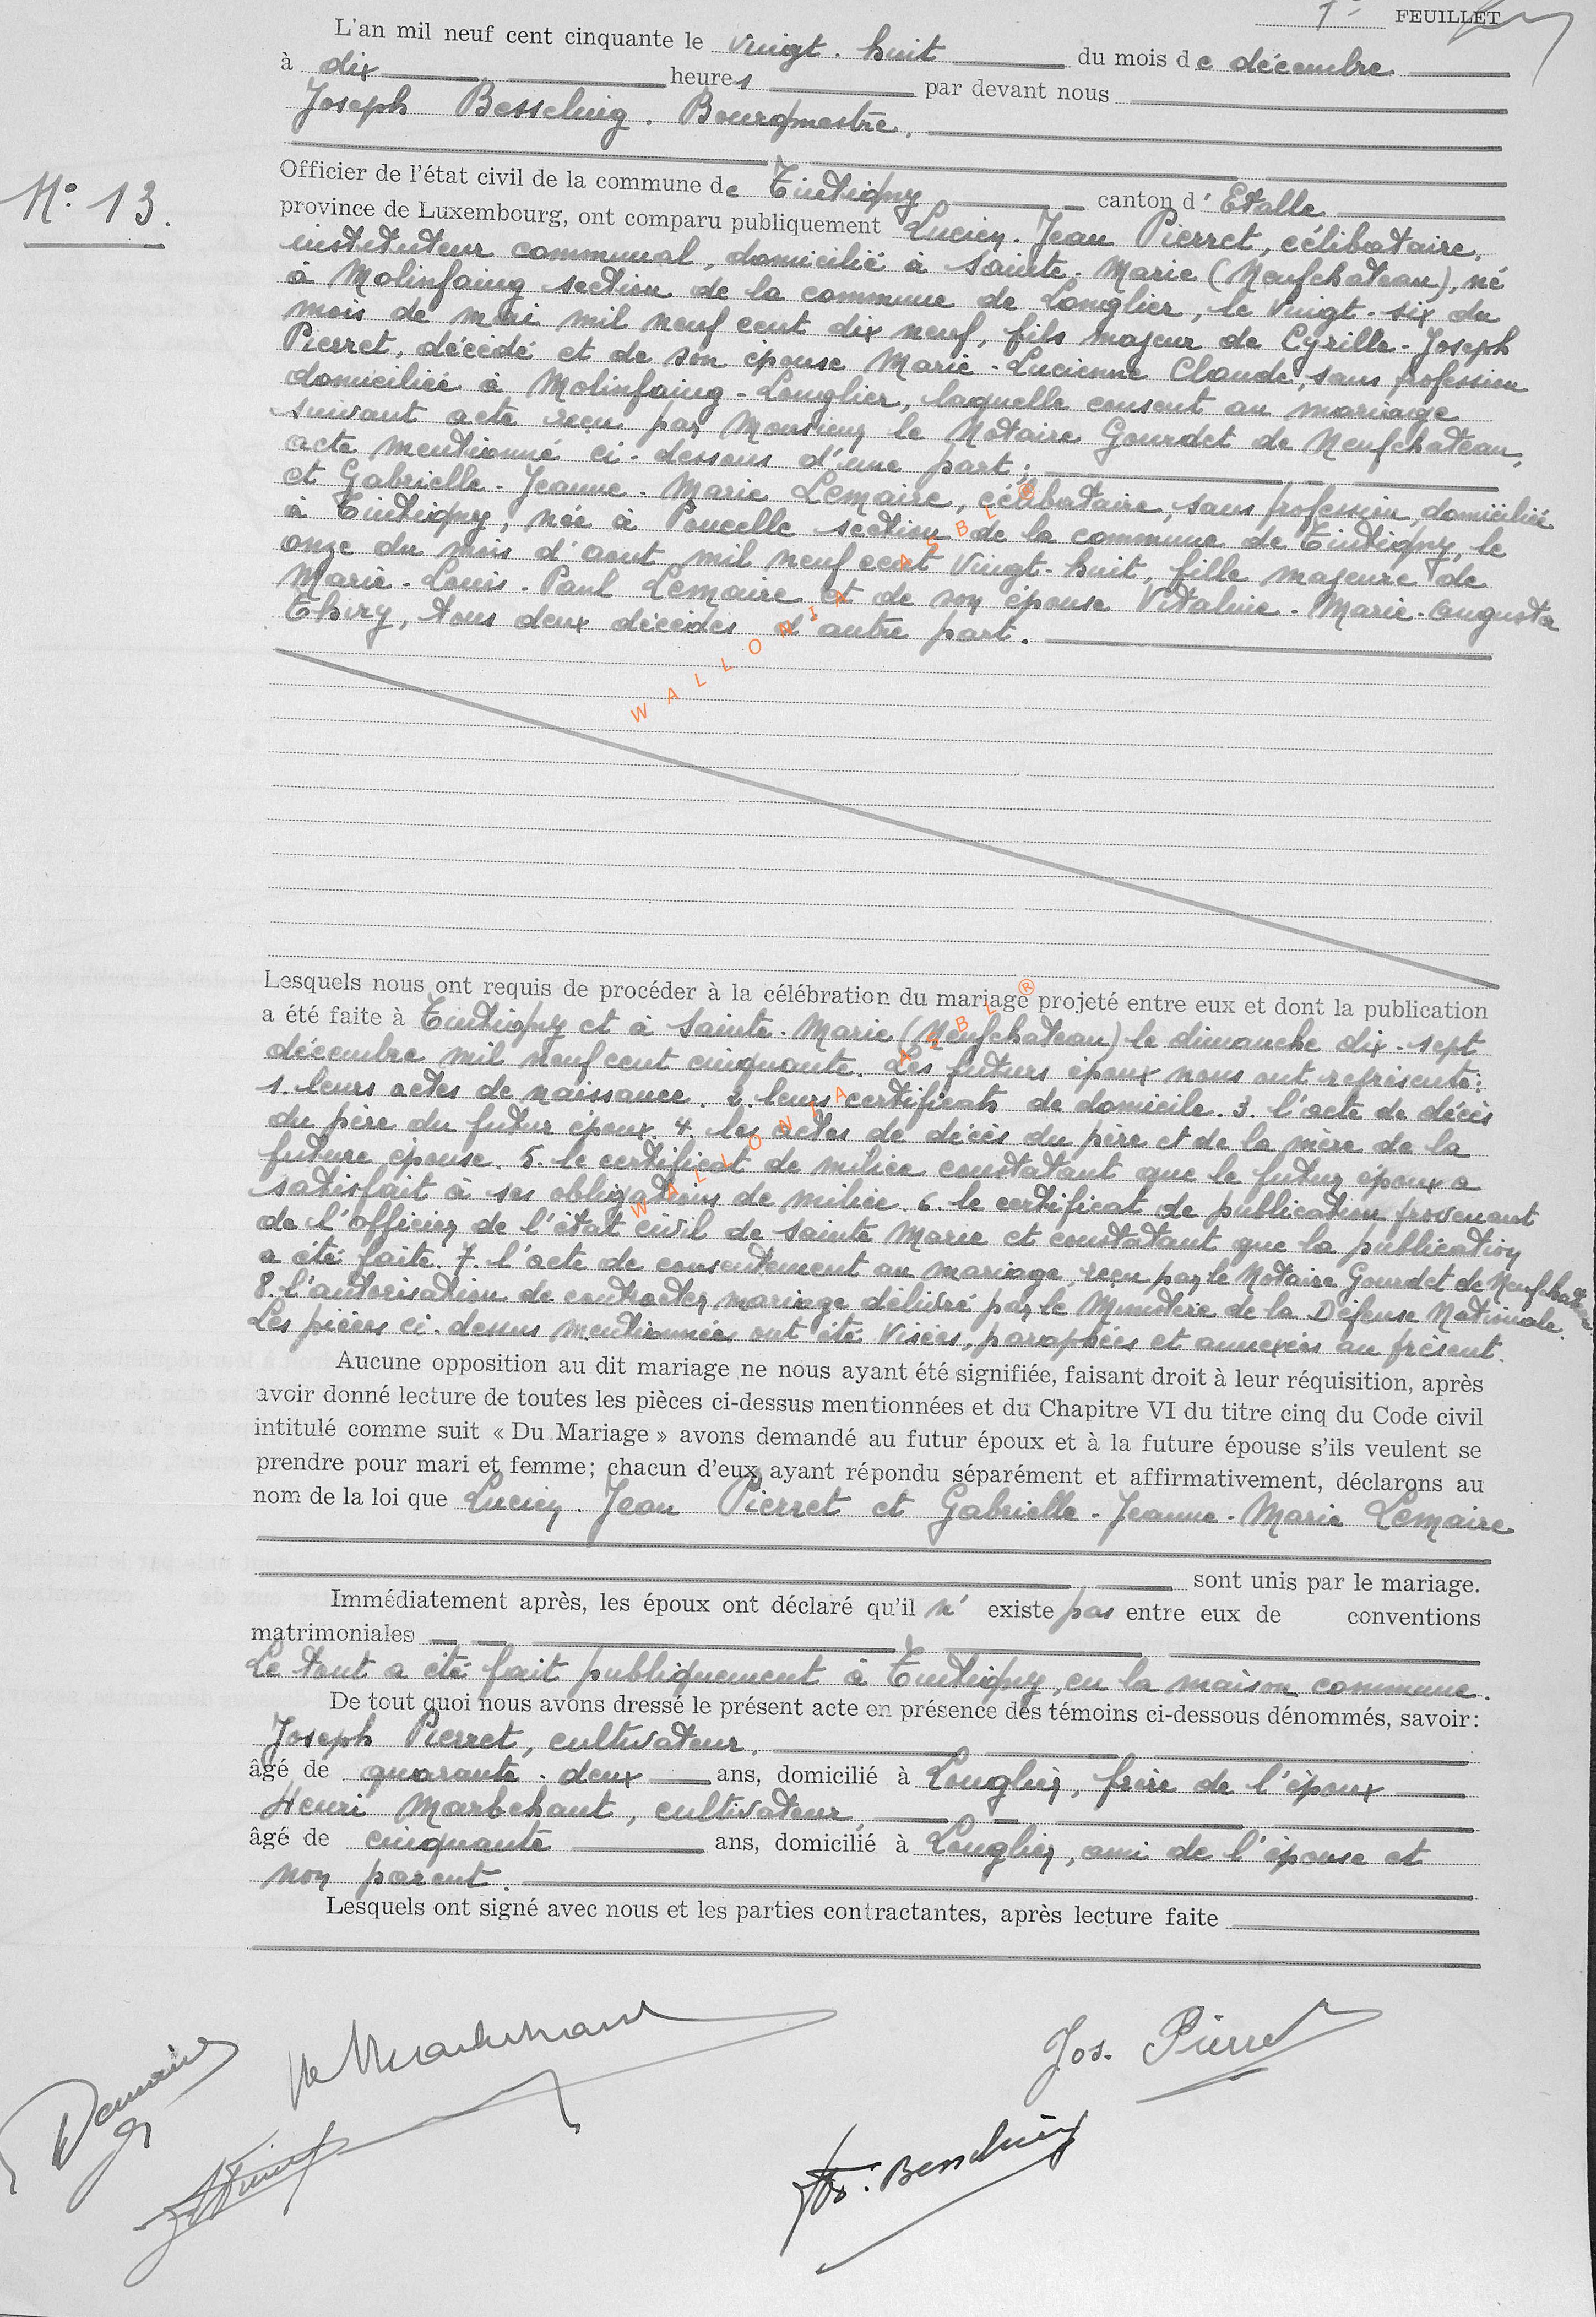 1er FEUILLET
L'an mil neuf cent cinquante le vingt-huit du mois de décembre
à dix heures par devant nous
Joseph Besseling. Bourgmestre,
Officier de l'état civil de la commune de Tintigny canton d'Etalle
N° 13.
province de Luxembourg, ont comparu publiquement Lucien-Jean Pierret, célibataire,
instituteur communal, domicilié à Sainte-Marie (Neufchateau), né
à Molinfaing section de la commune de Longlier, le vingt-six du
mois de mai mil neuf cent dix neuf, fils majeur de Cyrille-Joseph
Pierret, décédé et de son épouse Marie-Lucienne Claude, sans profession
domiciliée à Molinfaing-Longlier, laquelle consent au mariage
suivant acte reçu par Monsieur le Notaire Gourdet de Neufchateau,
acte mentionné ci-dessous d'une part;
et Gabrielle-Jeanne-Marie Lemaire, célibataire, sans profession, domiciliée
à Tintigny, née à Poncelle section de la commune de Tintigny, le
onze du mois d'aout mil neuf cent vingt-huit, fille majeure de
Marie-Louis-Paul Lemaire et de son épouse Vitaline-Marie-Augusta
Thiry, tous deux décédés d'autre part.
WALLONIA ASBL ®
Lesquels nous ont requis de procéder à la célébration du mariage projeté entre eux et dont la publication
a été faite à Tintigny et à Sainte-Marie (Neufchateau) le dimanche dix-sept
décembre mil neuf cent cinquante. Les futurs époux nous ont représenté:
1. leurs actes de naissance. 2. leurs certificats de domicile. 3. l'acte de décès
du père du futur époux 4. les actes de décès du père et de la mère de la
future épouse. 5. le certificat de milice constatant que le futur époux a
satisfait à ses obligations de milice. 6. le certificat de publication provenant
de l'officier de l'état civil de Sainte Marie et constatant que la publication
a été faite. 7. l'acte de consentement au mariage, reçu par le Notaire Gourdet de Neufchateau
8. l'autorisation de contracter mariage délivré par le Ministère de la Défense Nationale.
Les pièces ci-dessus mentionnées ont été visées, paraphées et annexées au présent.
WALLONIA ASBL ®
Aucune opposition au dit mariage ne nous ayant été signifiée, faisant droit à leur réquisition, après
avoir donné lecture de toutes les pièces ci-dessus mentionnées et du Chapitre VI du titre cinq du Code civil
intitulé comme suit « Du Mariage » avons demandé au futur époux et à la future épouse s'ils veulent se
prendre pour mari et femme; chacun d'eux ayant répondu séparément et affirmativement, déclarons au
nom de la loi que Lucien-Jean Pierret et Gabrielle-Jeanne-Marie Lemaire
sont unis par le mariage.
Immédiatement après, les époux ont déclaré qu'il n'existe pas entre eux de conventions
matrimoniales
Le tout a été fait publiquement à Tintigny, en la maison commune.
De tout quoi nous avons dressé le présent acte en présence des témoins ci-dessous dénommés, savoir:
Joseph Pierret, cultivateur,
âgé de quarante-deux ans, domicilié à Longlier, frère de l'époux
Henri Marbehant, cultivateur,
âgé de cinquante ans, domicilié à Longlier, ami de l'épouse et
non parent.
Lesquels ont signé avec nous et les parties contractantes, après lecture faite
Jos. Pierret